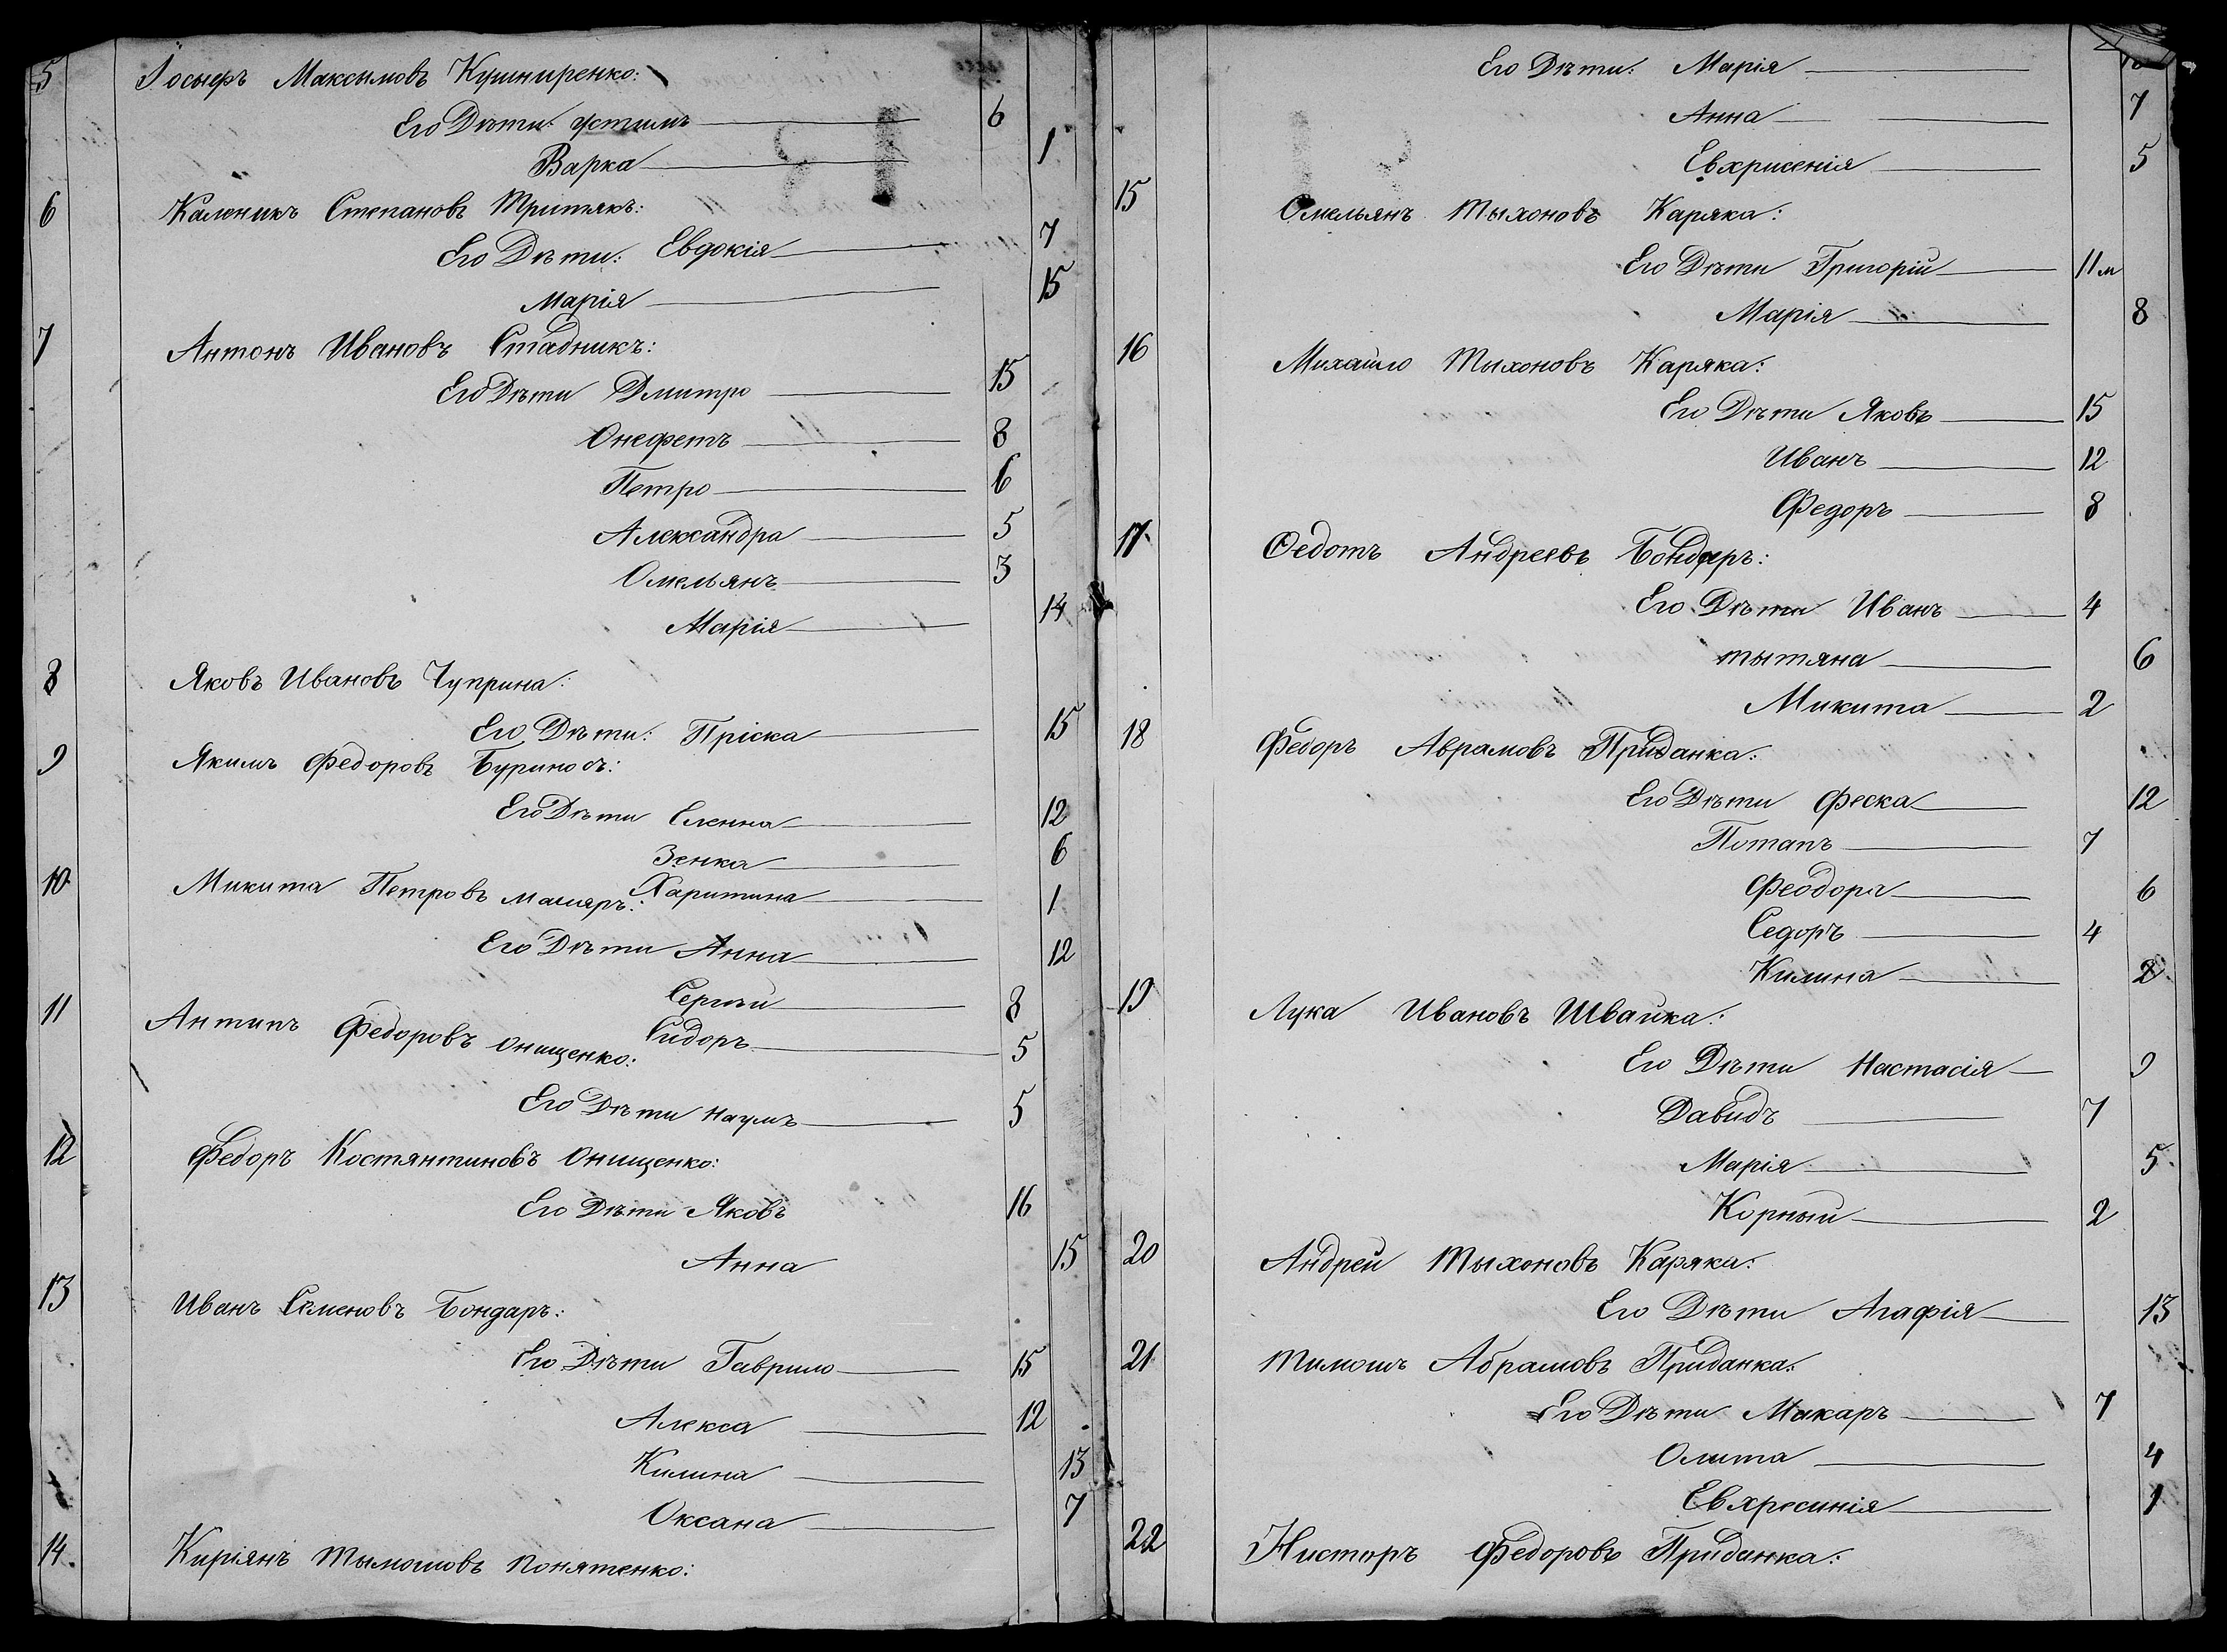 5 Іосыфъ Максимовъ Кушниренко:
Его Дѣти: Устымъ 6
Варка 1
6 Каленикъ Степановъ Тритякъ:
Его Дѣти: Евдокія 7
Марія 15
7 Антонъ Ивановъ Стадникъ:
Его Дѣти Дмитро 15
Онефетъ 8
Петро 6
Александра 5
Омельянъ 3
Марія 14
8 Яковъ Ивановъ Чуприна:
Его Дѣти: Пріска 15
9 Якимъ Федоровъ Буриносъ:
Его Дѣти Еленна 12
Зенка 6
Харитина 1
10 Микита Петровъ Маляръ:
Его Дѣти Анна 12
Сергѣй 8
Сидоръ 5
11 Антипъ Федоровъ Онищенко:
Его Дѣти Наумъ 5
12 Федоръ Костянтиновъ Онищенко:
Его Дѣти Яковъ 16
Анна 15
13 Иванъ Семеновъ Бондаръ:
Его Дѣти Гаврило 15
Алекса 12
Килина 13
Оксана 7
14. Киріянъ Тымошовъ Понятенко:
Его Дѣти: Марія
Анна 7
Евхрисенія 5
15 Омельянъ Тыхоновъ Каряка:
Его Дѣти Григорій 11 м
Марія 8
16 Михайло Тыхоновъ Каряка:
Его Дѣти Яковъ 15
Иванъ 12
Федоръ 8
17 Федотъ Андреевъ Бондаръ:
Его Дѣти Иванъ 4
Тытяна 6
Микита 2
18 Федоръ Аврамовъ Приданка:
Его Дѣти Феска 12
Потапъ 7
Феодора 6
Седоръ 4
Килина 2
19 Лука Ивановъ Швайка:
Его Дѣти Настасія 9
Давидъ 7
Марія 5
Корный 2
20 Андрей Тыхоновъ Каряка:
Его Дѣти Агафія 13
21 Тимошъ Абрамовъ Приданка:
Его Дѣти Макаръ 7
Олита 4
Евхресинія 1
22 Нисторъ Федоровъ Приданка: